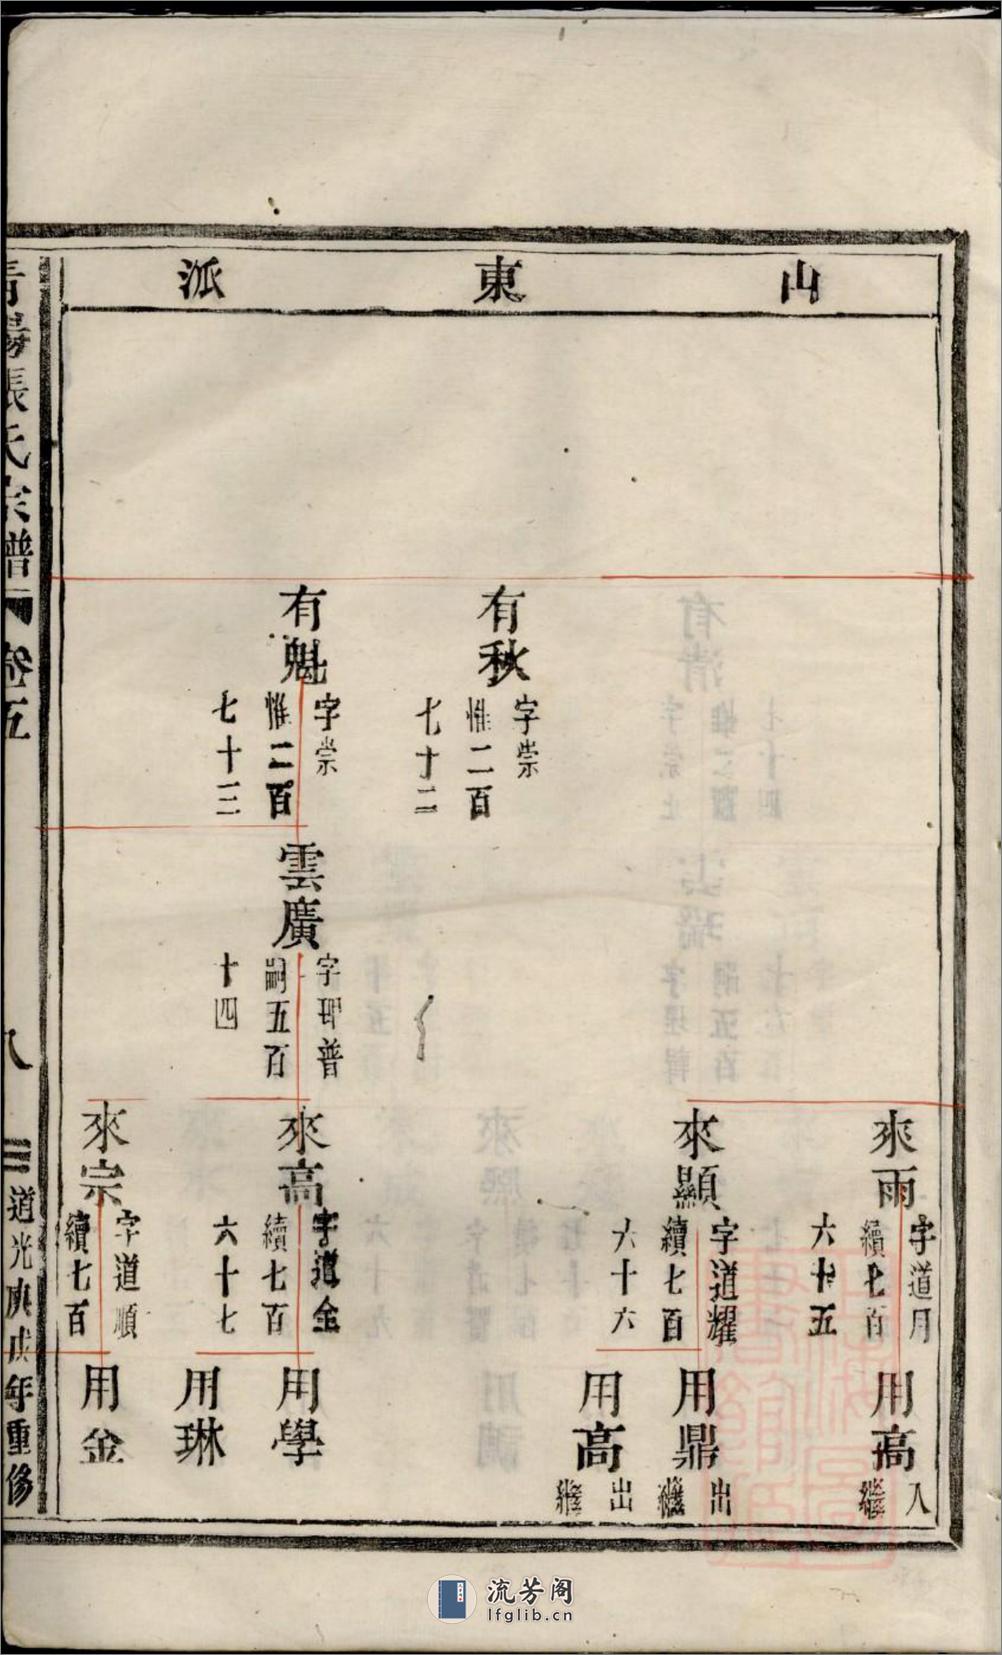 山東派
有秋
字崇
惟二百
七十二
有魁
字崇
惟二百
七十三
雲廣
字聖普
嗣五百
十四
來雨
字道月
續七百
六十五
來顯
字道耀
續七百
六十六
來高
字道全
續七百
六十七
來宗
字道順
續七百
用高
入
繼
用鼎
出
繼
用高
出
繼
用學
用琳
用金
青陽張氏宗譜
卷五
八
道光庚戌年重修
流芳阁
lfglib.cn